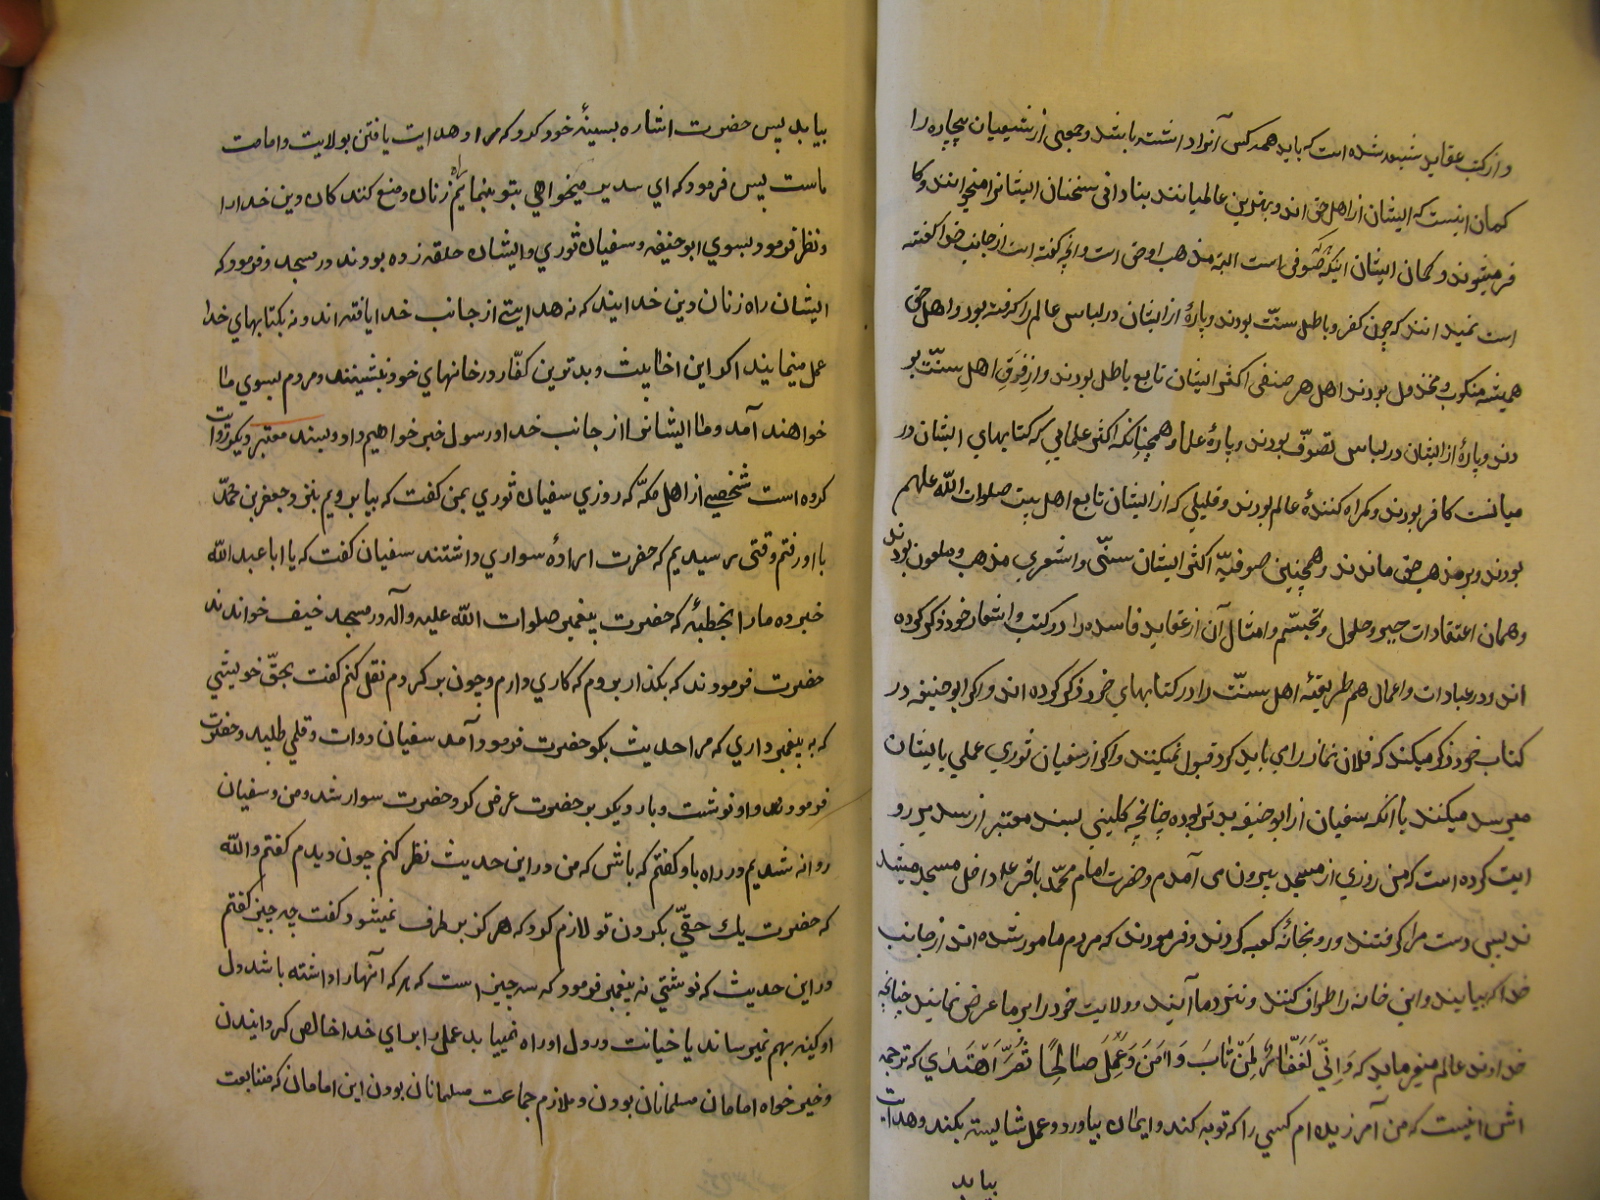 و از کتب عقاید شیعه شده است که باید همه کس آنرا داشته باشد و جمعی از شیعیان بیچاره را
کمان اینست که ایشان از اهل حق اند و بهترین عالمیانند بنادانی سخنان ایشانرا میخوانند و کا
فر میشوند و کمان ایشان اینکه صوفی است البته مذهب او حق است و انچه کفته است از جانب خدا کفته
است نمیدانند که چون کفر و باطل سنّت بودند و پارهٔ از ایشان در لباس عالم را کرفته بود و اهل حق
همیشه منکوب و مخذول بودند اهل هر صنفی اکثر ایشان تابع باطل بودند و از فِرَقِ اهل سنّت بو
دند و پارهٔ از ایشان در لباس تصوّف بودند و پارهٔ علما و همچنانکه اکثر علمایی که کتابهای ایشان در
میانست کافر بودند و کمراه کنندهٔ عالم بودند و قلیلی که از ایشان تابع اهل بیت صلوات اللّه علیهم
بودند و بر مذهب حق ماندند و همچنین صوفیّه اکثر ایشان سنّی و اشعری مذهب و ملعون بودند
و همان اعتقادات جبر و حلول و تجسّم و امثال آن از عقاید فاسده را در کتب و اشعار خود ذکر کرده
اند و در عبادات و اعمال هم طریقهٔ اهل سنّت را در کتابهای خود ذکر کرده اند و اکر ابو حنیفه در
کتاب خود ذکر میکند که فلان نماز را می باید کرد قبول نمیکنند و اکر از سفیان ثوری عملی بایشان
میرسد میکنند با آنکه سفیان از ابو حنیفه بدتر بوده چنانچه کلینی بسند معتبر از سدیر رو
ایت کرده است که من روزی از مسجد بیرون می آمدم و حضرت امام محمّد باقر ع داخل مسجد میشد
ند پس دست مرا کرفتند و رو بخانهٔ کعبه کردند و فرمودند که مردم مامور شده اند از جانب
خدا که بیایند و این خانه را طواف کنند و نزد ما آیند و ولایت خود را بر ما عرض نمایند چنانچه
خداوند عالم میفرماید که وَاِنّی لَغَفّارٌ لِمَنْ تابَ وَ اٰمَنَ وَ عَمِلَ صالِحًا ثُمَّ اهْتَدٰی که ترجمه
اش اینست که من آمرزیده ام کسی را که توبه کند و ایمان بیاورد و عمل شایسته بکند و هدایت
بیابد
بیابد پس حضرت اشاره بسینهٔ خود کرد و که مراد هدایت یافتن بولایت و امامت
ماست پس فرمود که ای سدیر میخواهی بتو بنمایم راه زنان و منع کنندکان دین خدا را
و نظر فرمود بسوی ابو حنیفه و سفیان ثوری و ایشان حلقه زده بودند در مسجد و فرمود که
ایشان راه زنان دین خدایند که نه هدایتی از جانب خدا یافته اند و نه بکتابهای خدا
عمل مینمایند اکر این اخابیث و بدترین کفّار در خانهای خود بنشینند و مردم بسوی ما
خواهند آمد و ما ایشانرا از جانب خدا و رسول خبر خواهیم داد و بسند معتبر دیکر روایت
کرده است شخصی از اهل مکّه که روزی سفیان ثوری بمن کفت که بیا برویم بنزد جعفر بن محمّد
با او رفتم وقتی رسیدیم که حضرت ارادهٔ سواری داشتند سفیان کفت که یا ابا عبد اللّه
خبر ده ما را بخطبهٔ که حضرت پیغمبر صلوات اللّه علیه و آله در مسجد خیف خواندند
حضرت فرمودند که بکذار بروم که کاری دارم و چون برکردم نقل کنم کفت بحقّ خویشی
که به پیغمبر داری که مرا حدیث بکو حضرت فرود آمد سفیان دوات و قلمی طلبید و حضرت
فرمودند و او نوشت و بار دیکر بر حضرت عرض کرد و حضرت سوار شد و من و سفیان
روانه شدیم در راه باو کفتم که باش که من در این حدیث نظر کنم چون دیدم کفتم و اللّه
که حضرت یك حقّی بکردن تو لازم کرد که هرکز بر طرف نمیشود کفت چه چیز کفتم
در این حدیث که نوشتی نه پیغمبر فرمود که سه چیز است که هر که آنها را داشته باشد دل
او کینه بهم نمیرساند یا خیانت در دل او راه نمییابد عمل را برای خدا خالص کردانیدن
و خیر خواه امامان مسلمانان بودن و ملازم جماعت مسلمانان بودن این امامان که متابعت